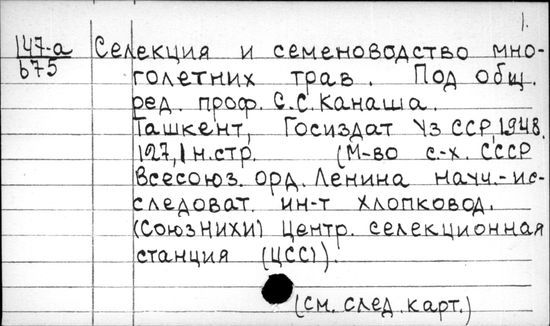 1.
147-а Селекция и семеноводство мно-
б75 голетних трав. Под общ.
ред. проф. С.С. Канаша.
Ташкент, Госиздат УзССР, 1948.
127,1 н.стр. (М-во с.-х. СССР
Всесоюз. орд. Ленина науч.-ис-
следоват. ин-т хлопковод.
(СоюзНИХИ) Центр. селекционная
станция (ЦСС)).
(см. след. карт.)